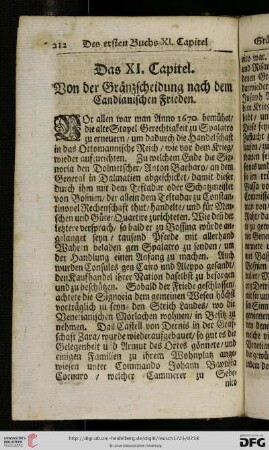 212 Des ersten Buchs XI. Capitel
Das XI. Capitel.
Von der Gränzscheidung nach dem
Candianischen Frieden.
Vor allen war man Anno 1670. bemühet/
die alte Stapel Gerechtigkeit zu Spalatro
zu erneuern / um dadurch die Handelschaft
in das Ottomannische Reich / wie vor dem Krieg/
wieder aufzurichten. Zu welchem Ende die Sig-
noria den Dolmetscher / Anton Barbaro / an den
General in Dalmatien abgeschickt / damit dieser
durch ihn mit dem Testadar oder Schatzmeister
von Bosnien / der allein dem Testadar zu Constan-
tinopel Rechenschaft thut / handelte / und für Men-
schen und Güte Quartire zurichteten. Wie denn der
letztere versprach / so bald er zu Bossina würde an-
gelanget seyn / tausend Pferde mit allerhand
Wahren beladen gen Spalatro zu senden / um
der Handlung einen Anfang zu machen. Auch
wurden Consules gen Cairo und Aleppo gesandt/
den Kaufhandel ihrer Nation daselbst zu besorgen
und zu beschützen. Sobald der Friede geschlossen/
achtete die Signoria dem gemeinen Wesen höchst
vorträglich zu seyn / den Strich Landes / wo die
Venetianischen Morlachen wohnen / in Besitz zu
nehmen. Das Castell von Dernis in der Graf-
schaft Zara / wurde wieder aufgebauet / so gut es die
Gelegenheit und Armut des Ortes gönnete / und
einigen Familien zu ihrem Wohnplatz ange-
wiesen unter Commando Johann Baptista
Cornaro / welcher Cammerer zu Sebe-
nico
http://digi.ub.uni-heidelberg.de/diglit/neu
© Universitätsbibliothek Heidelberg
DFG